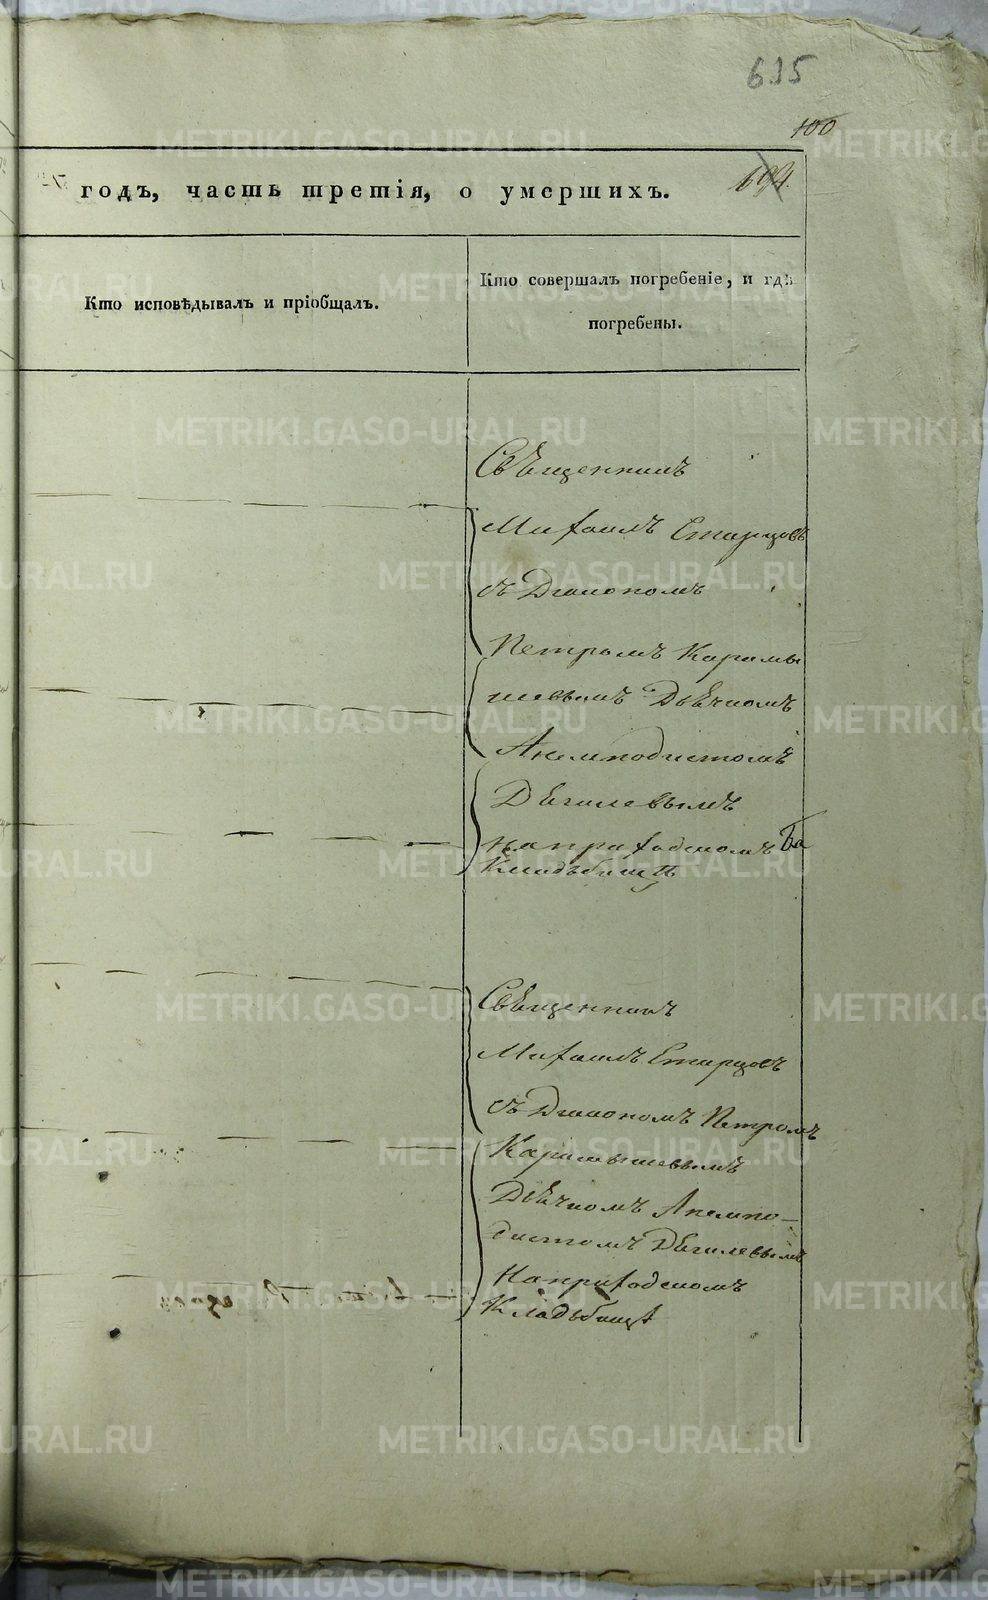 635
100
694.
годъ, часть третія, о умершихъ.
Кто исповѣдывалъ и пріобщалъ.
Кто совершалъ погребеніе, и гдѣ
погребены.
Священникъ
Михаилъ Старцовъ
съ Діакономъ
Петромъ Карамы
шевымъ Дьячкомъ
Анемподистомъ
Дѣгилевымъ
на приходскомъ
Кладьбищѣ
Священникъ
Михаилъ Старцовъ
съ Діакономъ Петромъ
Карамышевымъ
Дьячкомъ Анемпо-
дистомъ Дѣгилевымъ
На приходскомъ
Кладьбищѣ
METRIKI.GASO-URAL.RU